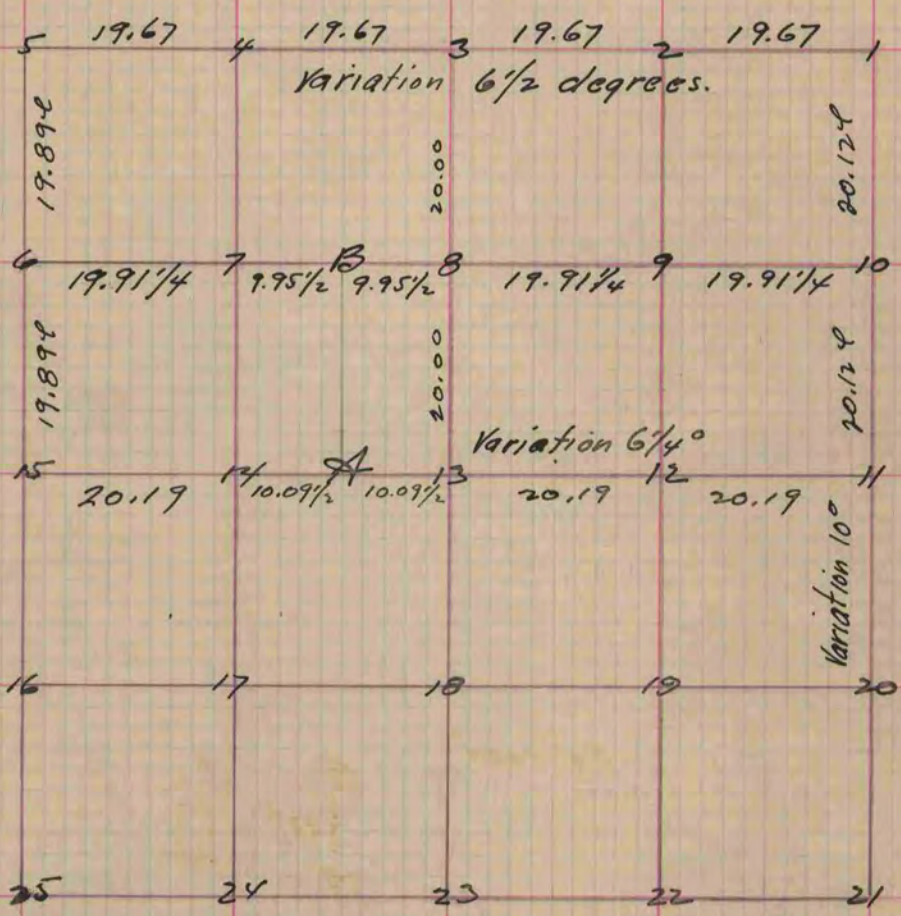 5 19.67 4 19.67 3 19.67 2 19.67 1
Variation 6 1/2 degrees.
19.89 20.00 20.12
6 7 B 8 9 10
19.91 1/4 9.95 1/2 9.95 1/2 19.91 1/4 19.91 1/4
19.89 20.00 20.12
Variation 6 1/4°
15 14 A 13 12 11
20.19 10.09 1/2 10.09 1/2 20.19 20.19
Variation 10°
16 17 18 19 20
25 24 23 22 21